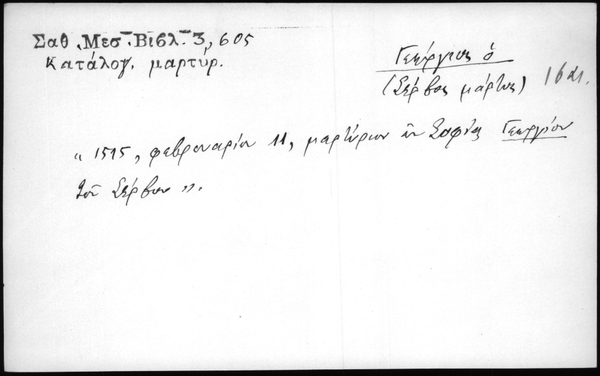 Σαθ. Μεσ. Βιβλ. 3, 605
Κατάλογ. μαρτύρ.
Γεώργιος ὁ
(Σέρβος μάρτυς) 16 αι.
"1515, φεβρουαρίου 11, μαρτύριον ἐν Σοφίᾳ Γεωργίου
τοῦ Σέρβου".